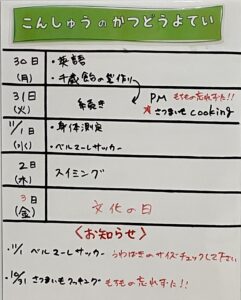 こんしゅうのかつどうよてい
30日(月) ・英語
・千歳飴の袋作り
31日(火) 手裂き PM ももちの忘れずに!!
★さつまいもcooking
11/1(水) ・身体測定
・ベルマーレサッカー
2日(木) スイミング
3日(金) 文化の日
〈お知らせ〉
・11/1 ベルマーレサッカー うわばきのサイズチェックして下さい
・10/31 さつまいもクッキング もちもの忘れずに!!